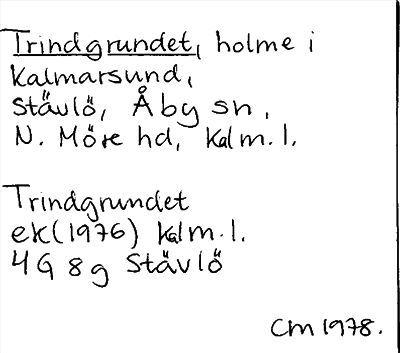 Trindgrundet, holme i
Kalmarsund,
Stävlö, Åby sn,
N. Möre hd, Kalm.l.
Trindgrundet
ek(1976) Kalm.l.
4G 8g Stävlö
CM 1978.